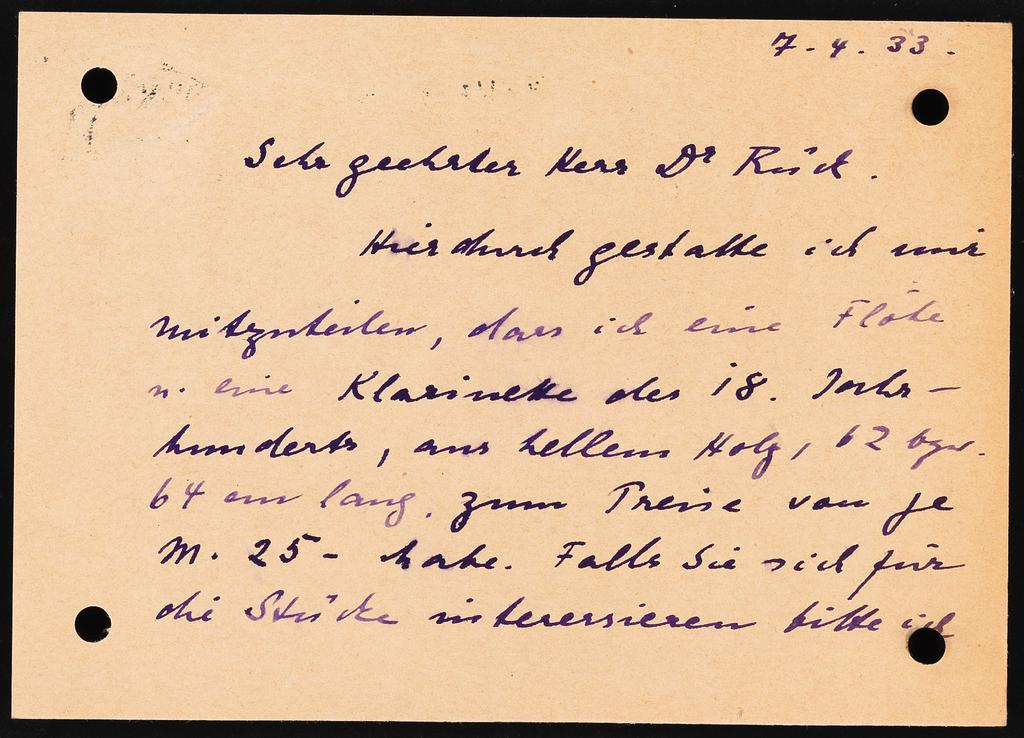 7.4.33.
Sehr geehrter Herr Dr Rück.
Hierdurch gestatte ich mir
mitzuteilen, dass ich eine Flöte
u. eine Klarinette des 18. Jahr-
hunderts, aus hellem Holz, 62 bzw.
64 cm lang, zum Preise von je
M. 25- habe. Falls Sie sich für
die Stücke interessieren bitte ich